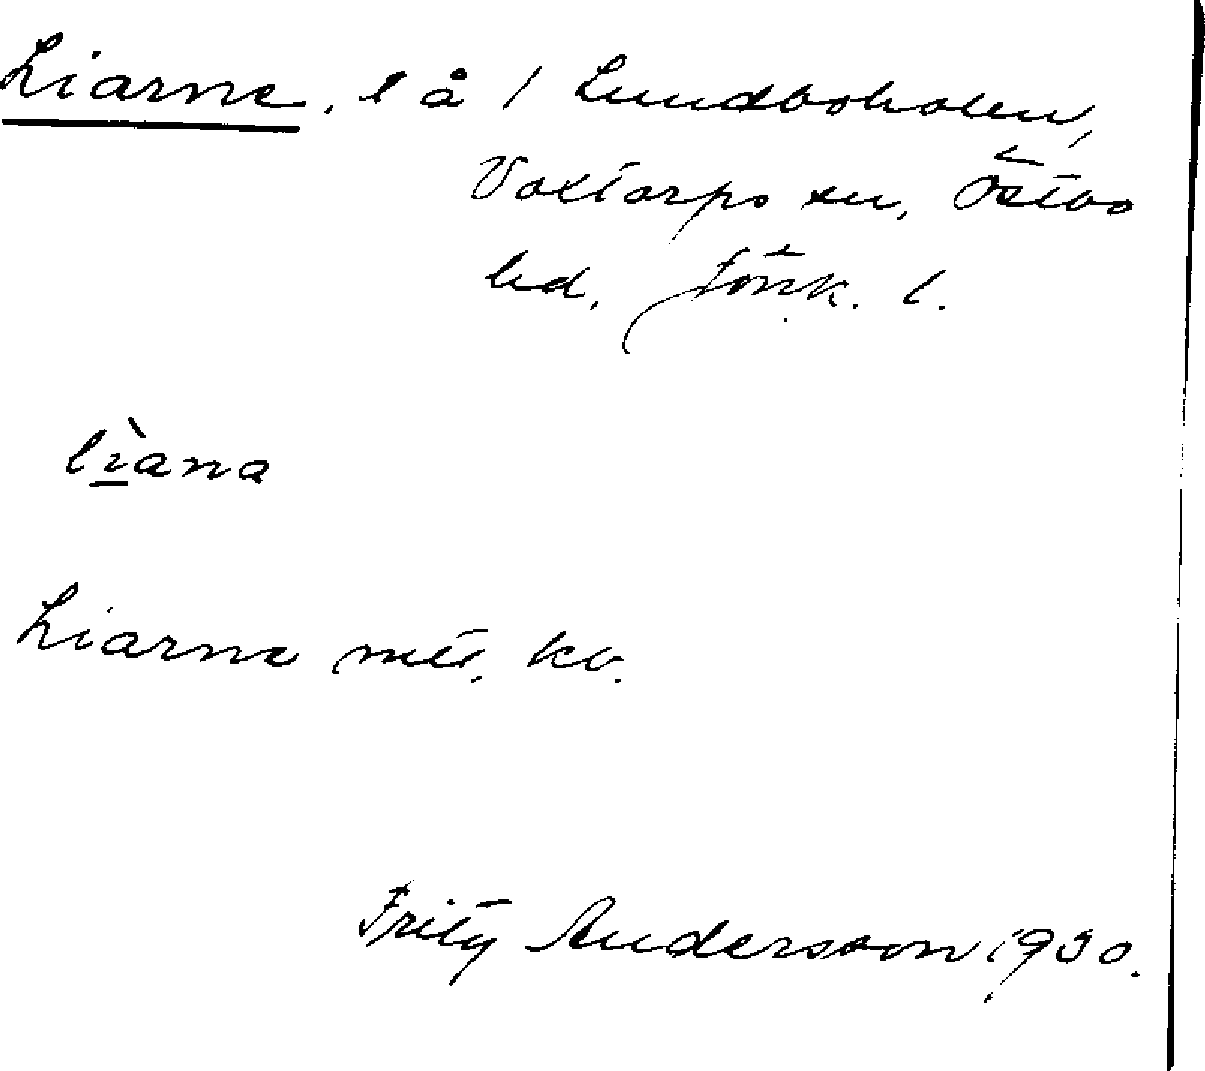 Liarne, l å / Lundboholen,
Voxtorps sn, Östbo
hd, Jönk. l.
lìana
Liarne mtr. kv.
Fritz Andersson 1930.